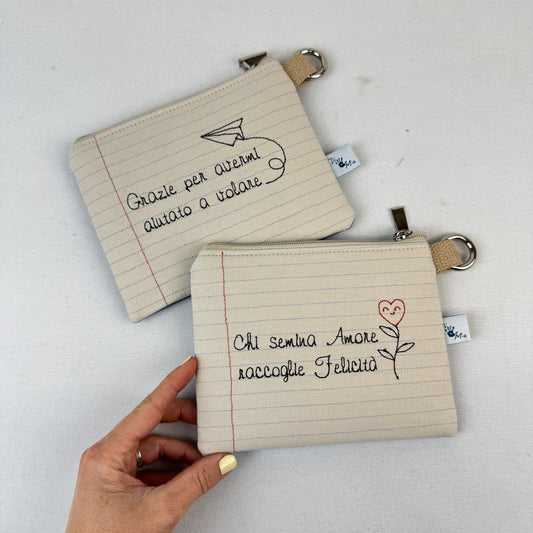 Grazie per avermi
aiutato a volare
Chi semina Amore
raccoglie Felicità